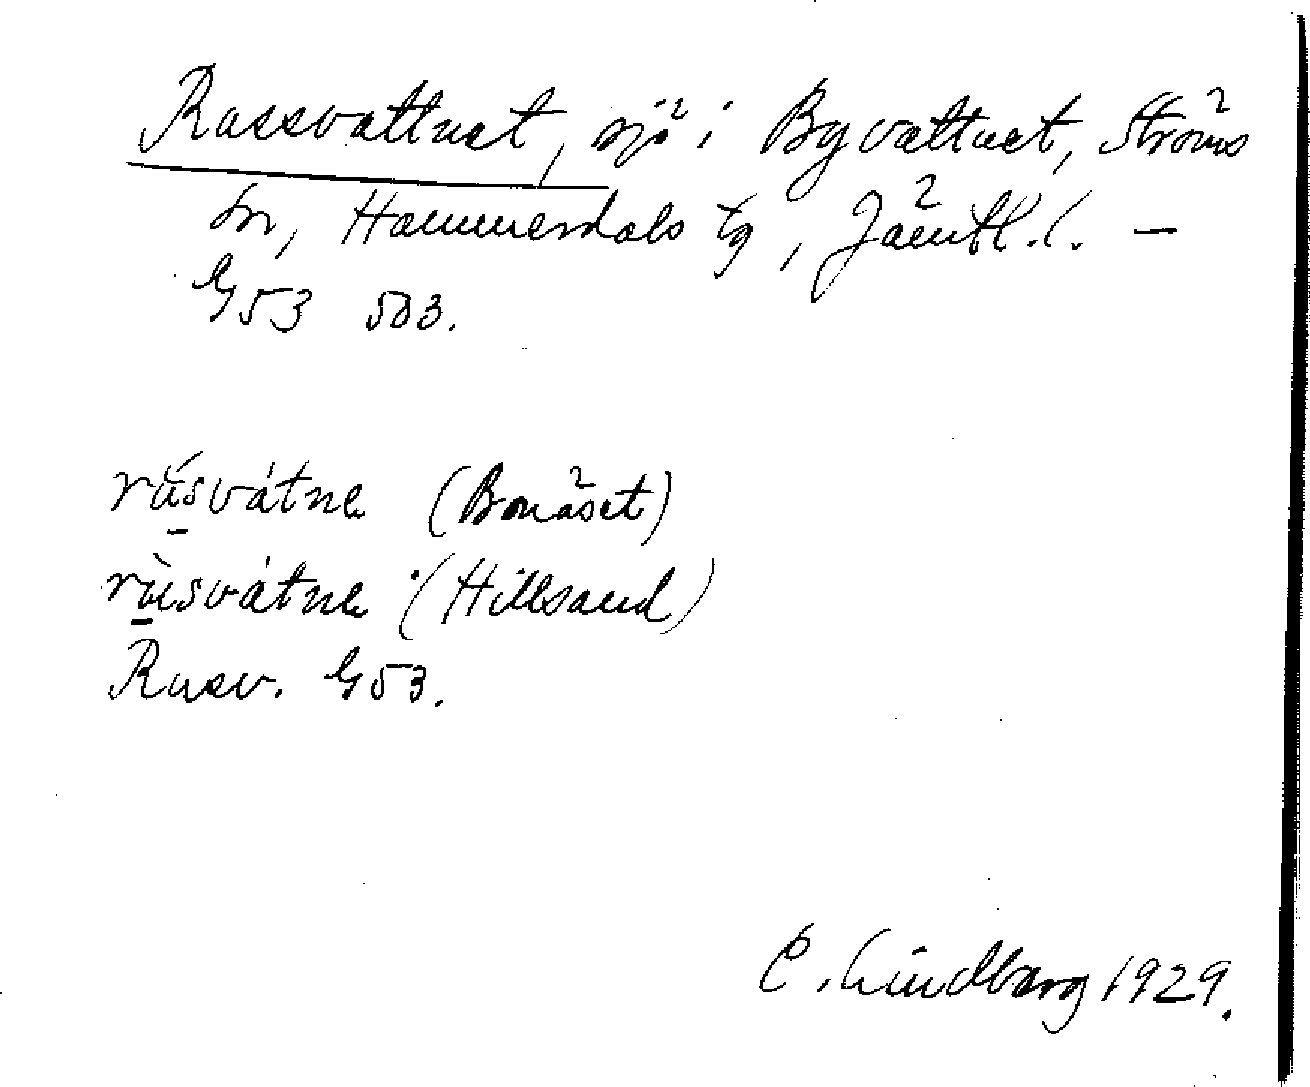 Rassvattnet, sjö i Byvattnet, Ströms
sn, Hammerdals tg, Jämtl. l. —
G53 503.
råsvátne (Bonäset)
rùsvátne (Hillsand)
Rusv. G53.
C. Lindberg 1929.